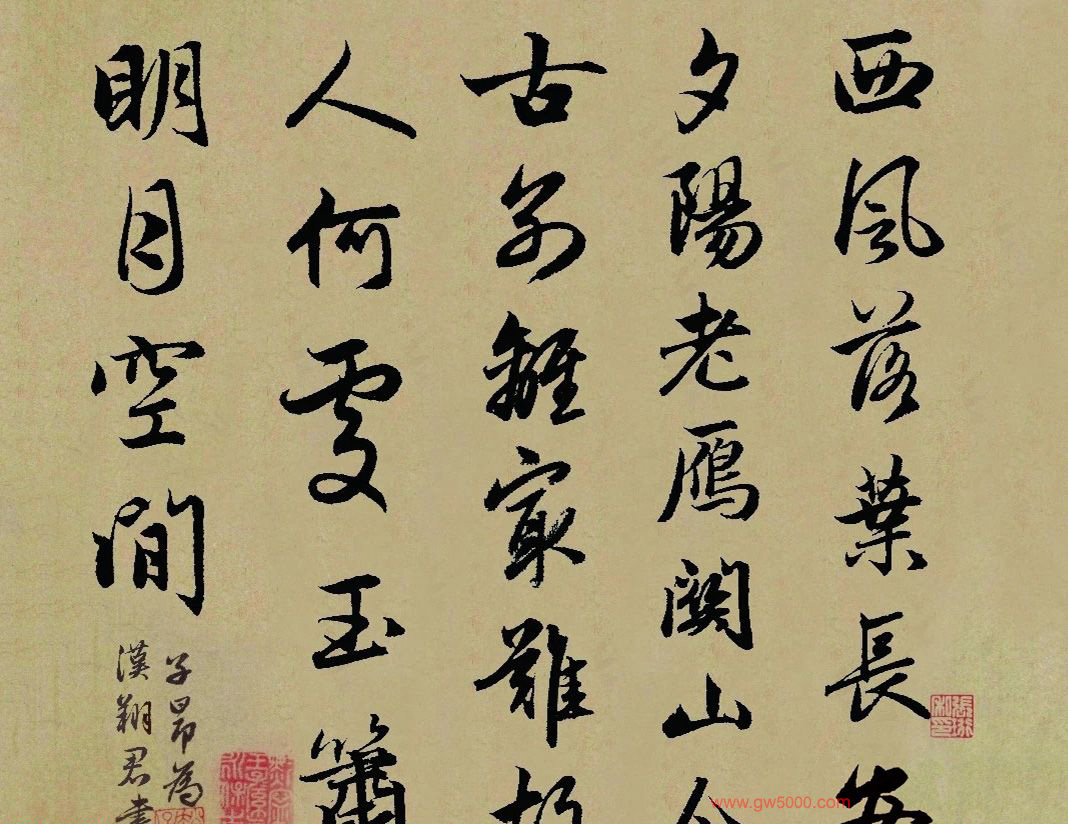 西風落葉長安
夕陽老鴈關山今
古別離最難故
人何處玉簫
明月空間
子昂為
漢翔君書
www.gw5000.com